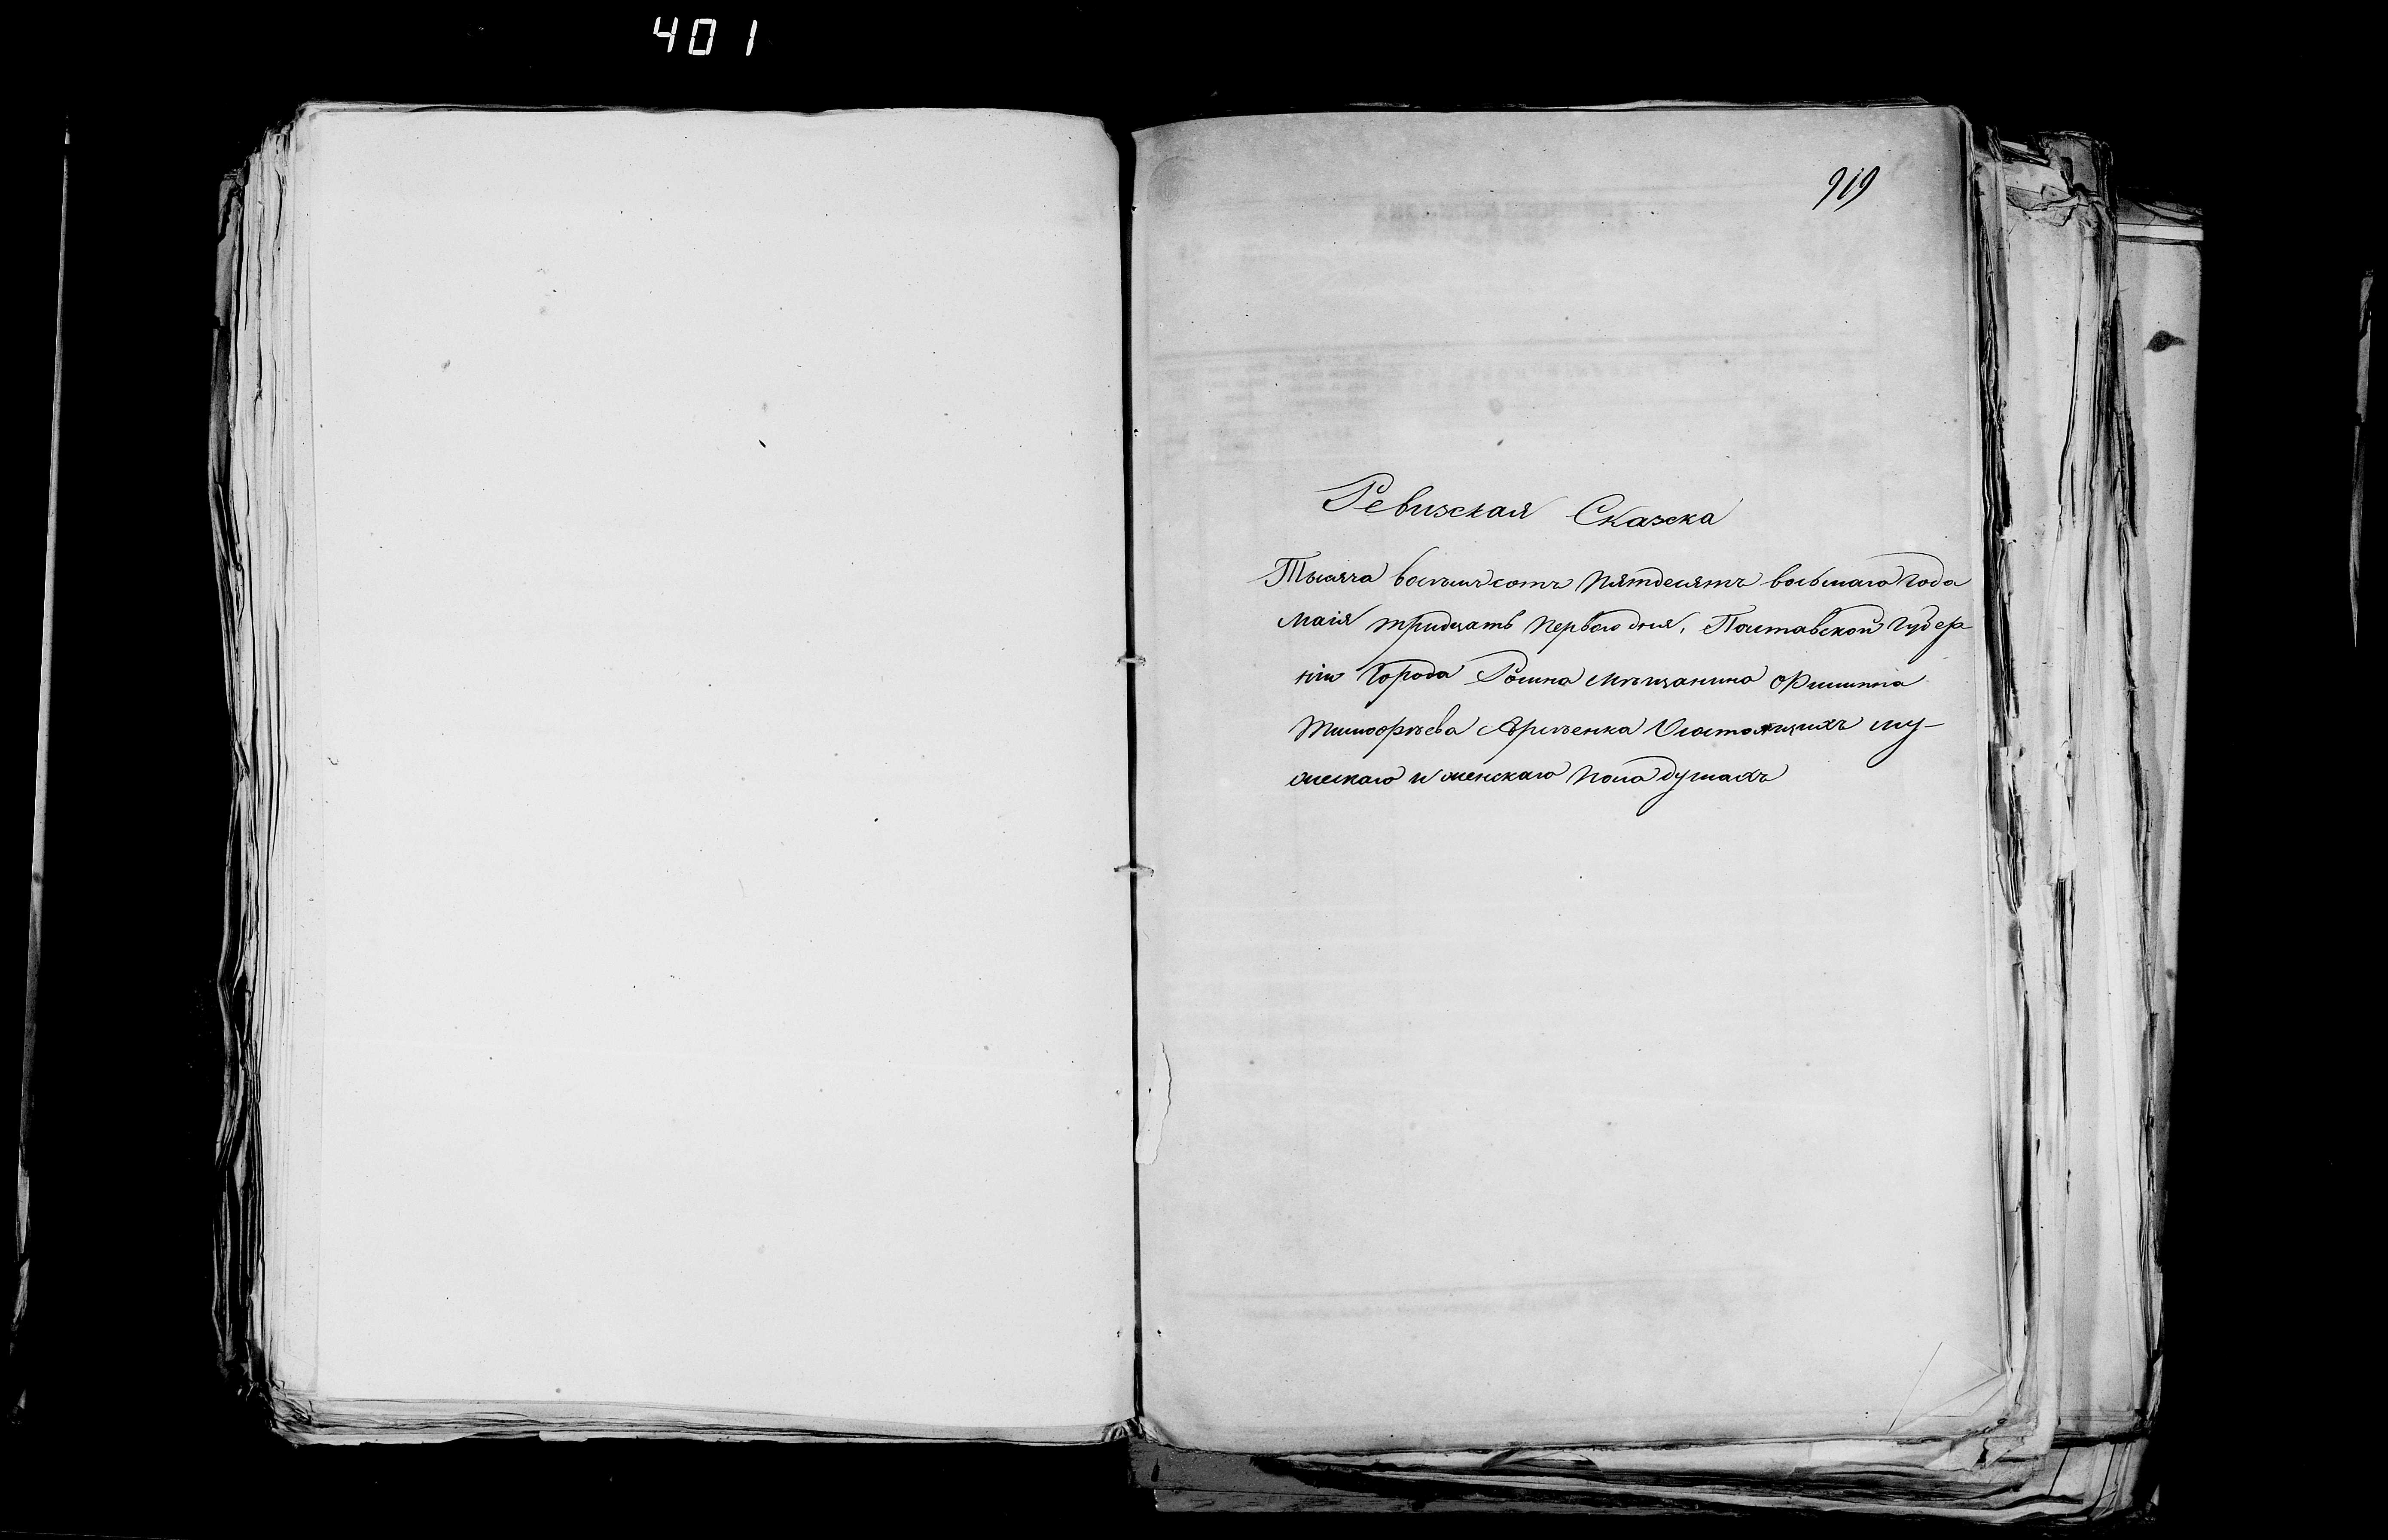 401
919
Ревизская Сказка
Тысяча восемьсотъ пятдесятъ восьмаго года
маія тридцать перваго дня, Полтавской Губер
ніи Города Ромна мѣщанина Филиппа
Тимофѣева о Состоящихъ му-
жескаго и женскаго пола душахъ